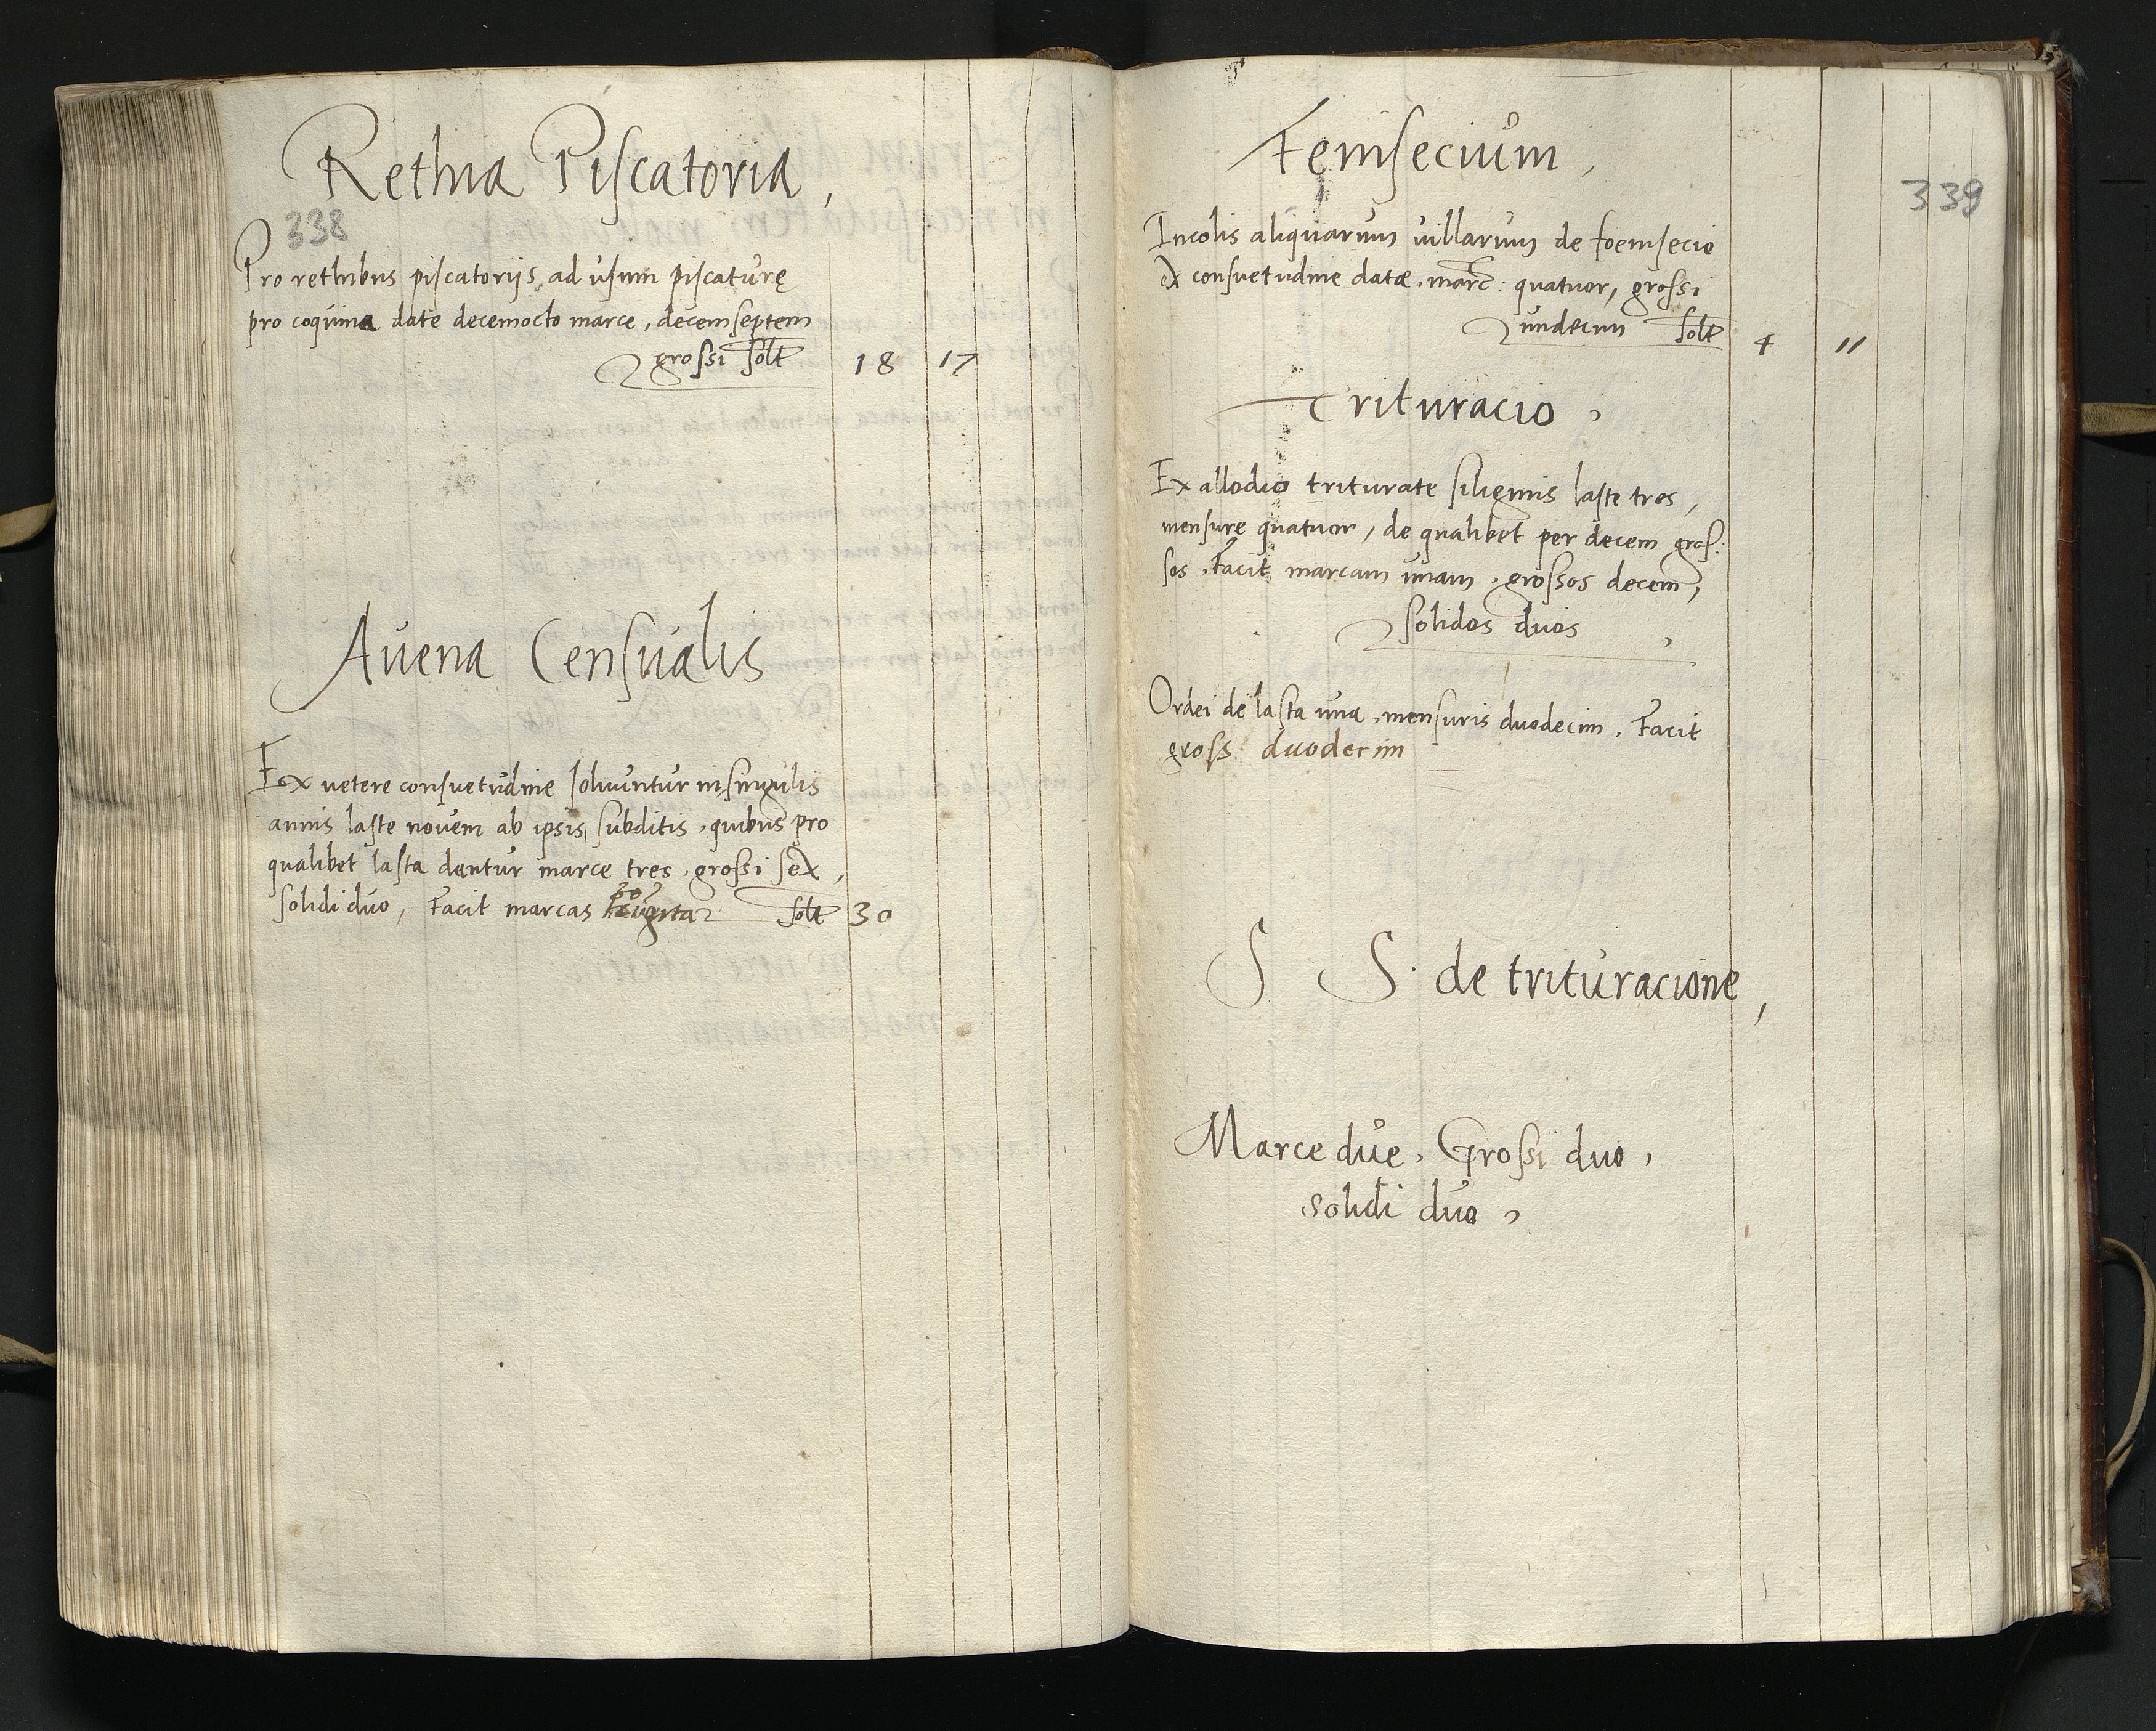 Rethia Piscatoria,
338
Pro rethibus piscatorijs, ad usum piscaturę
pro coquina date decemocto marce, decemseptem
grossi Solt 18 17
Avena Censualis
Ex vetere consvetudine solvuntur in singulis
annis laste novem ab ipsis subditis, quibus pro
qualibet lasta dantur marce tres, grossi sex,
solidi duo, Facit marcas 30 Solt 30
Fenisecium,
339
Incolis aliquarum villarum de foenisecio
ex consvetudine datæ, marc: quatuor, grossi
undecim Solt 4 11
Trituracio,
Ex allodio triturate siliginis laste tres,
mensurę quatuor, de qualibet per decem gros:
sos, Facit marcam unam, grossos decem,
Solidos duos,
Ordei de lasta una, mensuris duodecim, Facit
gross duodecim
S S. de trituracione,
Marce due, Grossi duo,
solidi duo,